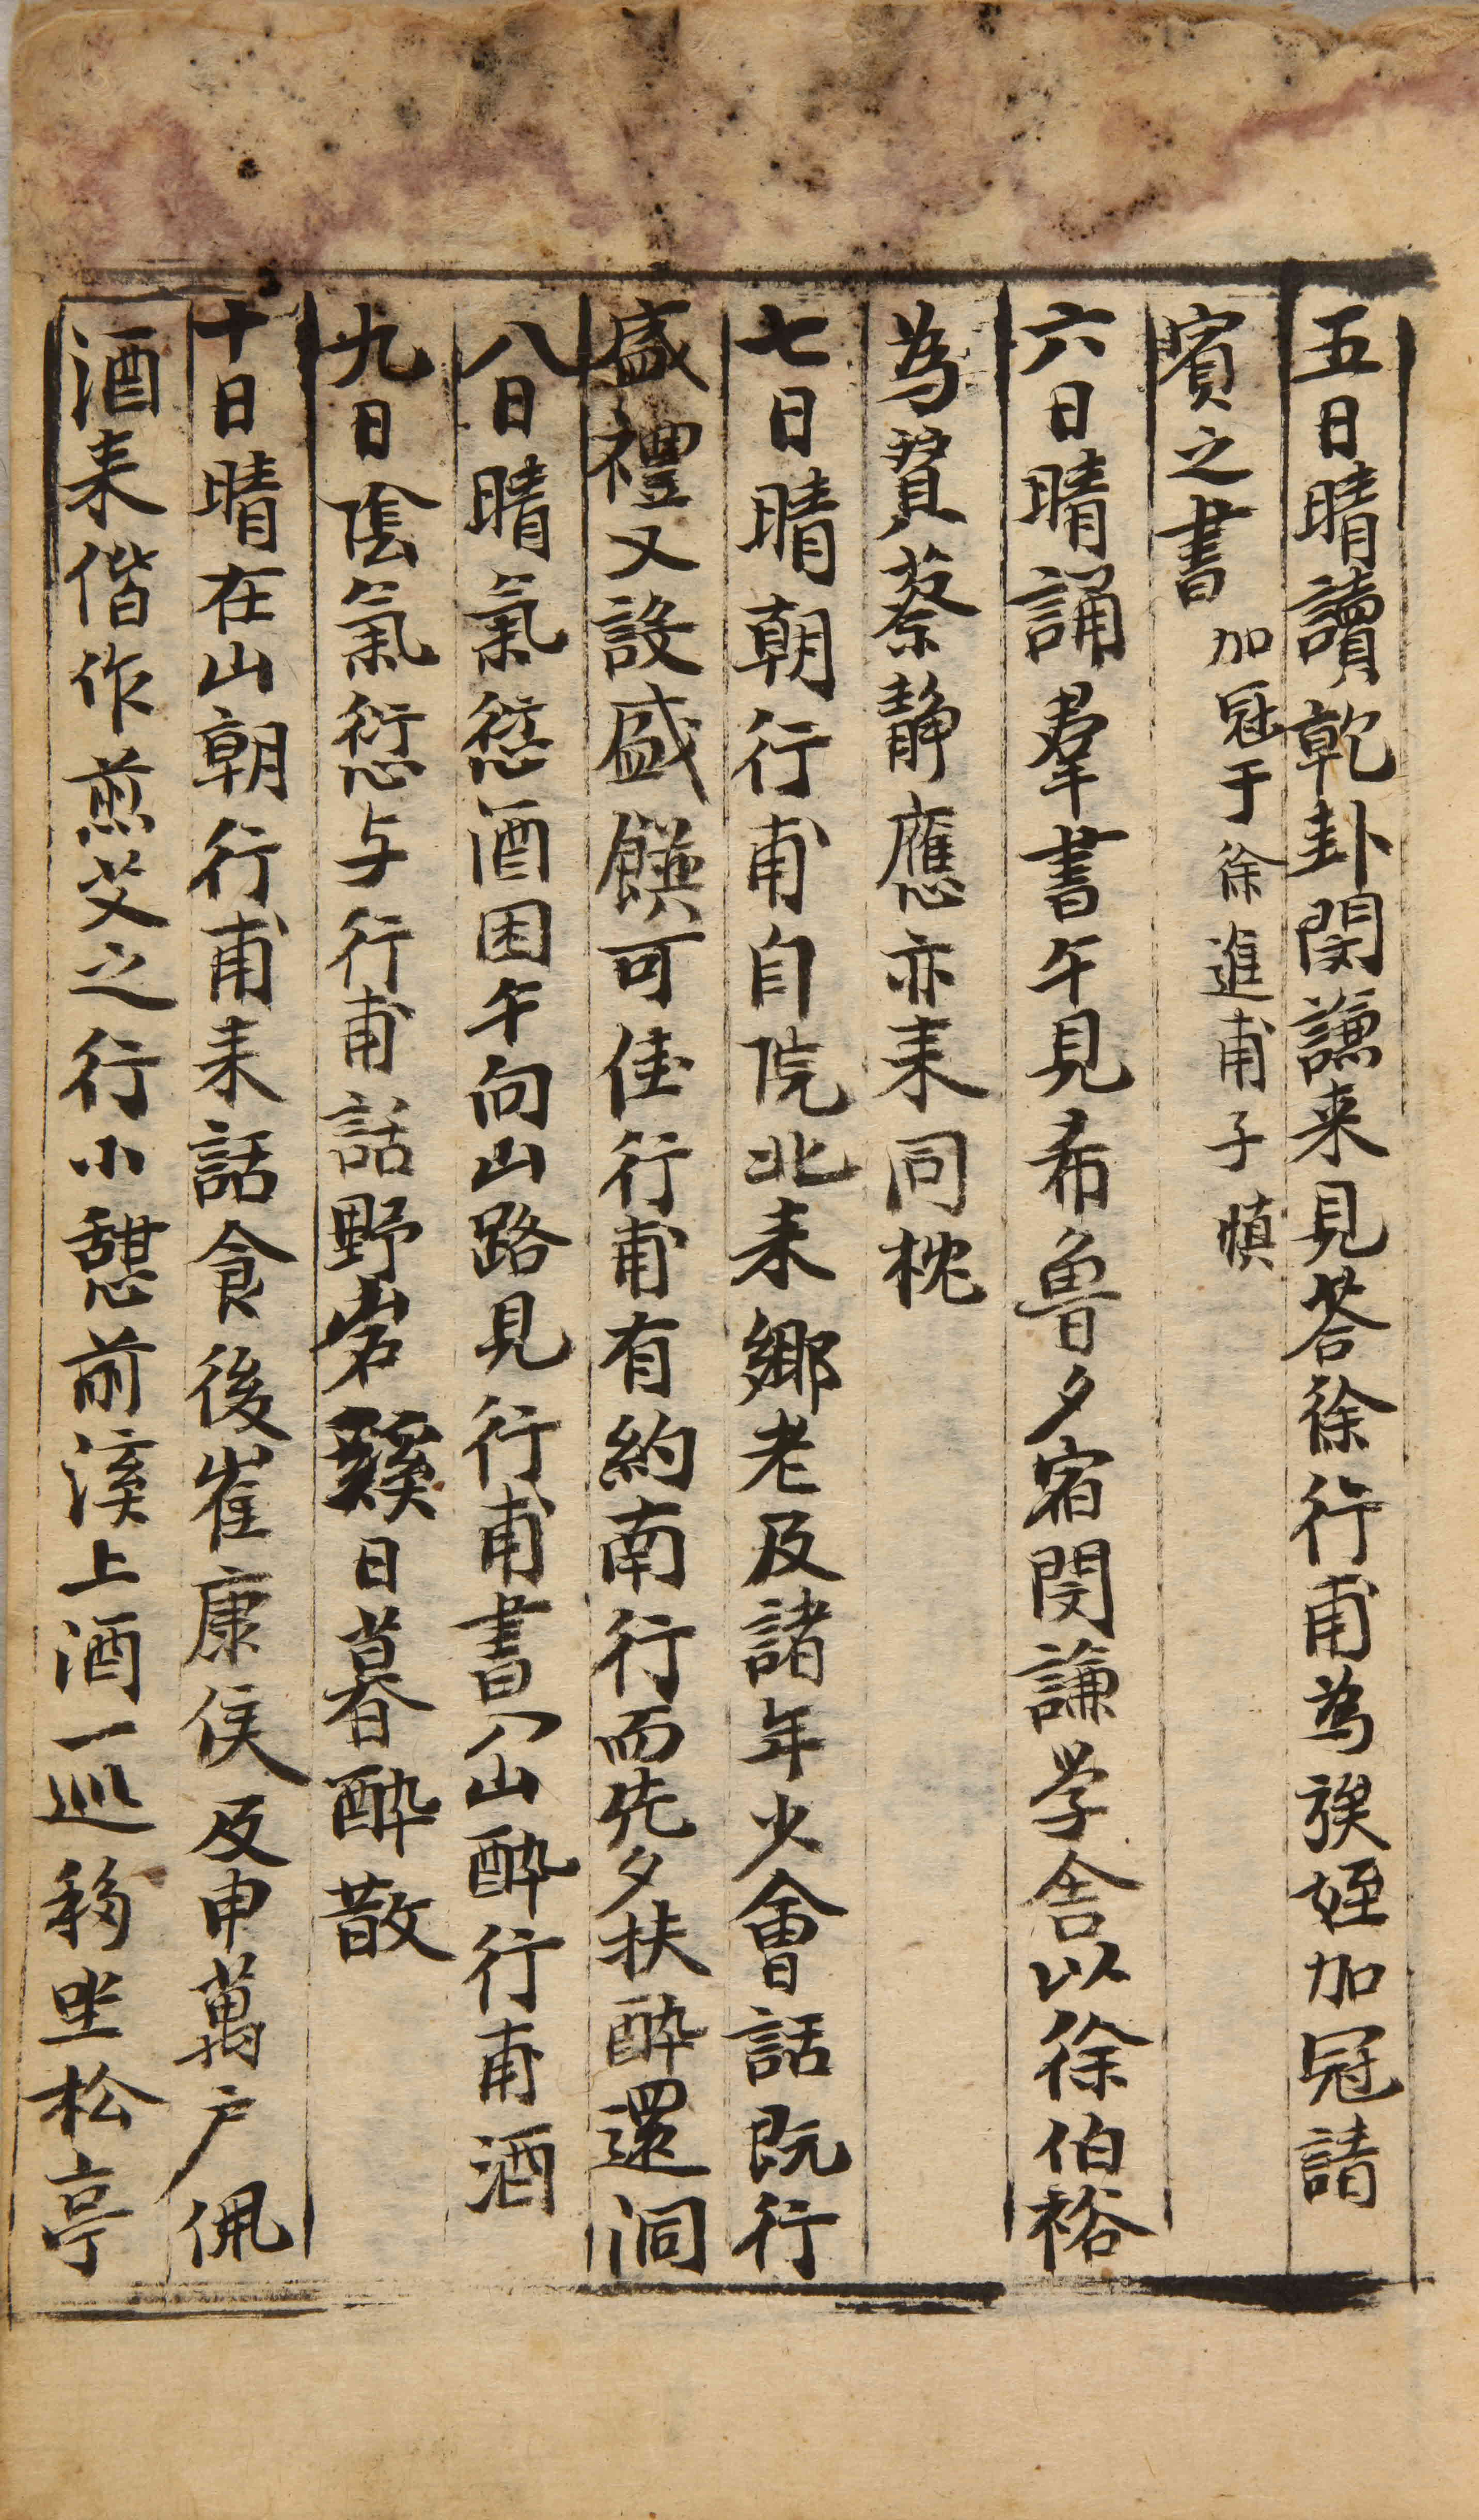 五日晴讀乾卦閔謙来見答徐行甫為族姪加冠請
賓之書 加冠于徐進甫子慎
六日晴誦羣書午見希魯夕宿閔謙学舍以徐伯裕
為賛蔡静應亦来同枕
七日晴朝行甫自院北来鄉老及諸年少會話既行
盛禮又設盛饌可佳行甫有約南行而先夕扶醉還洞
八日晴氣愆酒困午向山路見行甫書入山醉行甫酒
九日陰氣愆与行甫話野岩谿日暮醉散
十日晴在山朝行甫来話食後崔康侯及申萬户佩
酒来偕作煎艾之行小憩前溪上酒一巡移坐松亭